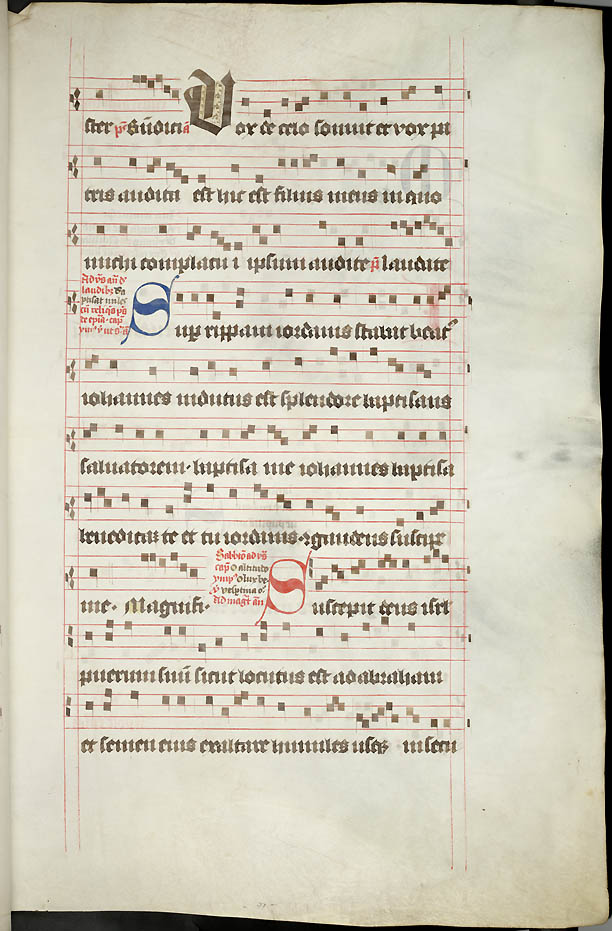 ster ps Bn̄dicta Vox de celo sonuit et vox pa
tris audita est hic est filius meus in quo
michi complacui ipsum audite ps laudate
Ad vs̄ an̄ d̄
laudibz
Sup ripam iordanis stabat beat9
iohannes indutus est splendore baptisans
saluatorem. baptisa me iohannes baptisa
benedicat te et tu iordanis gaudens suscipe
Sabbo ad vs̄
cap̄ O altitudo
ympn9 O lux be
me. Magnifi. Suscepit deus isrl
Ad magt̄ an̄
puerum suū sicut locutus est ad abraham
et semen eius exaltare humiles usqz in secu